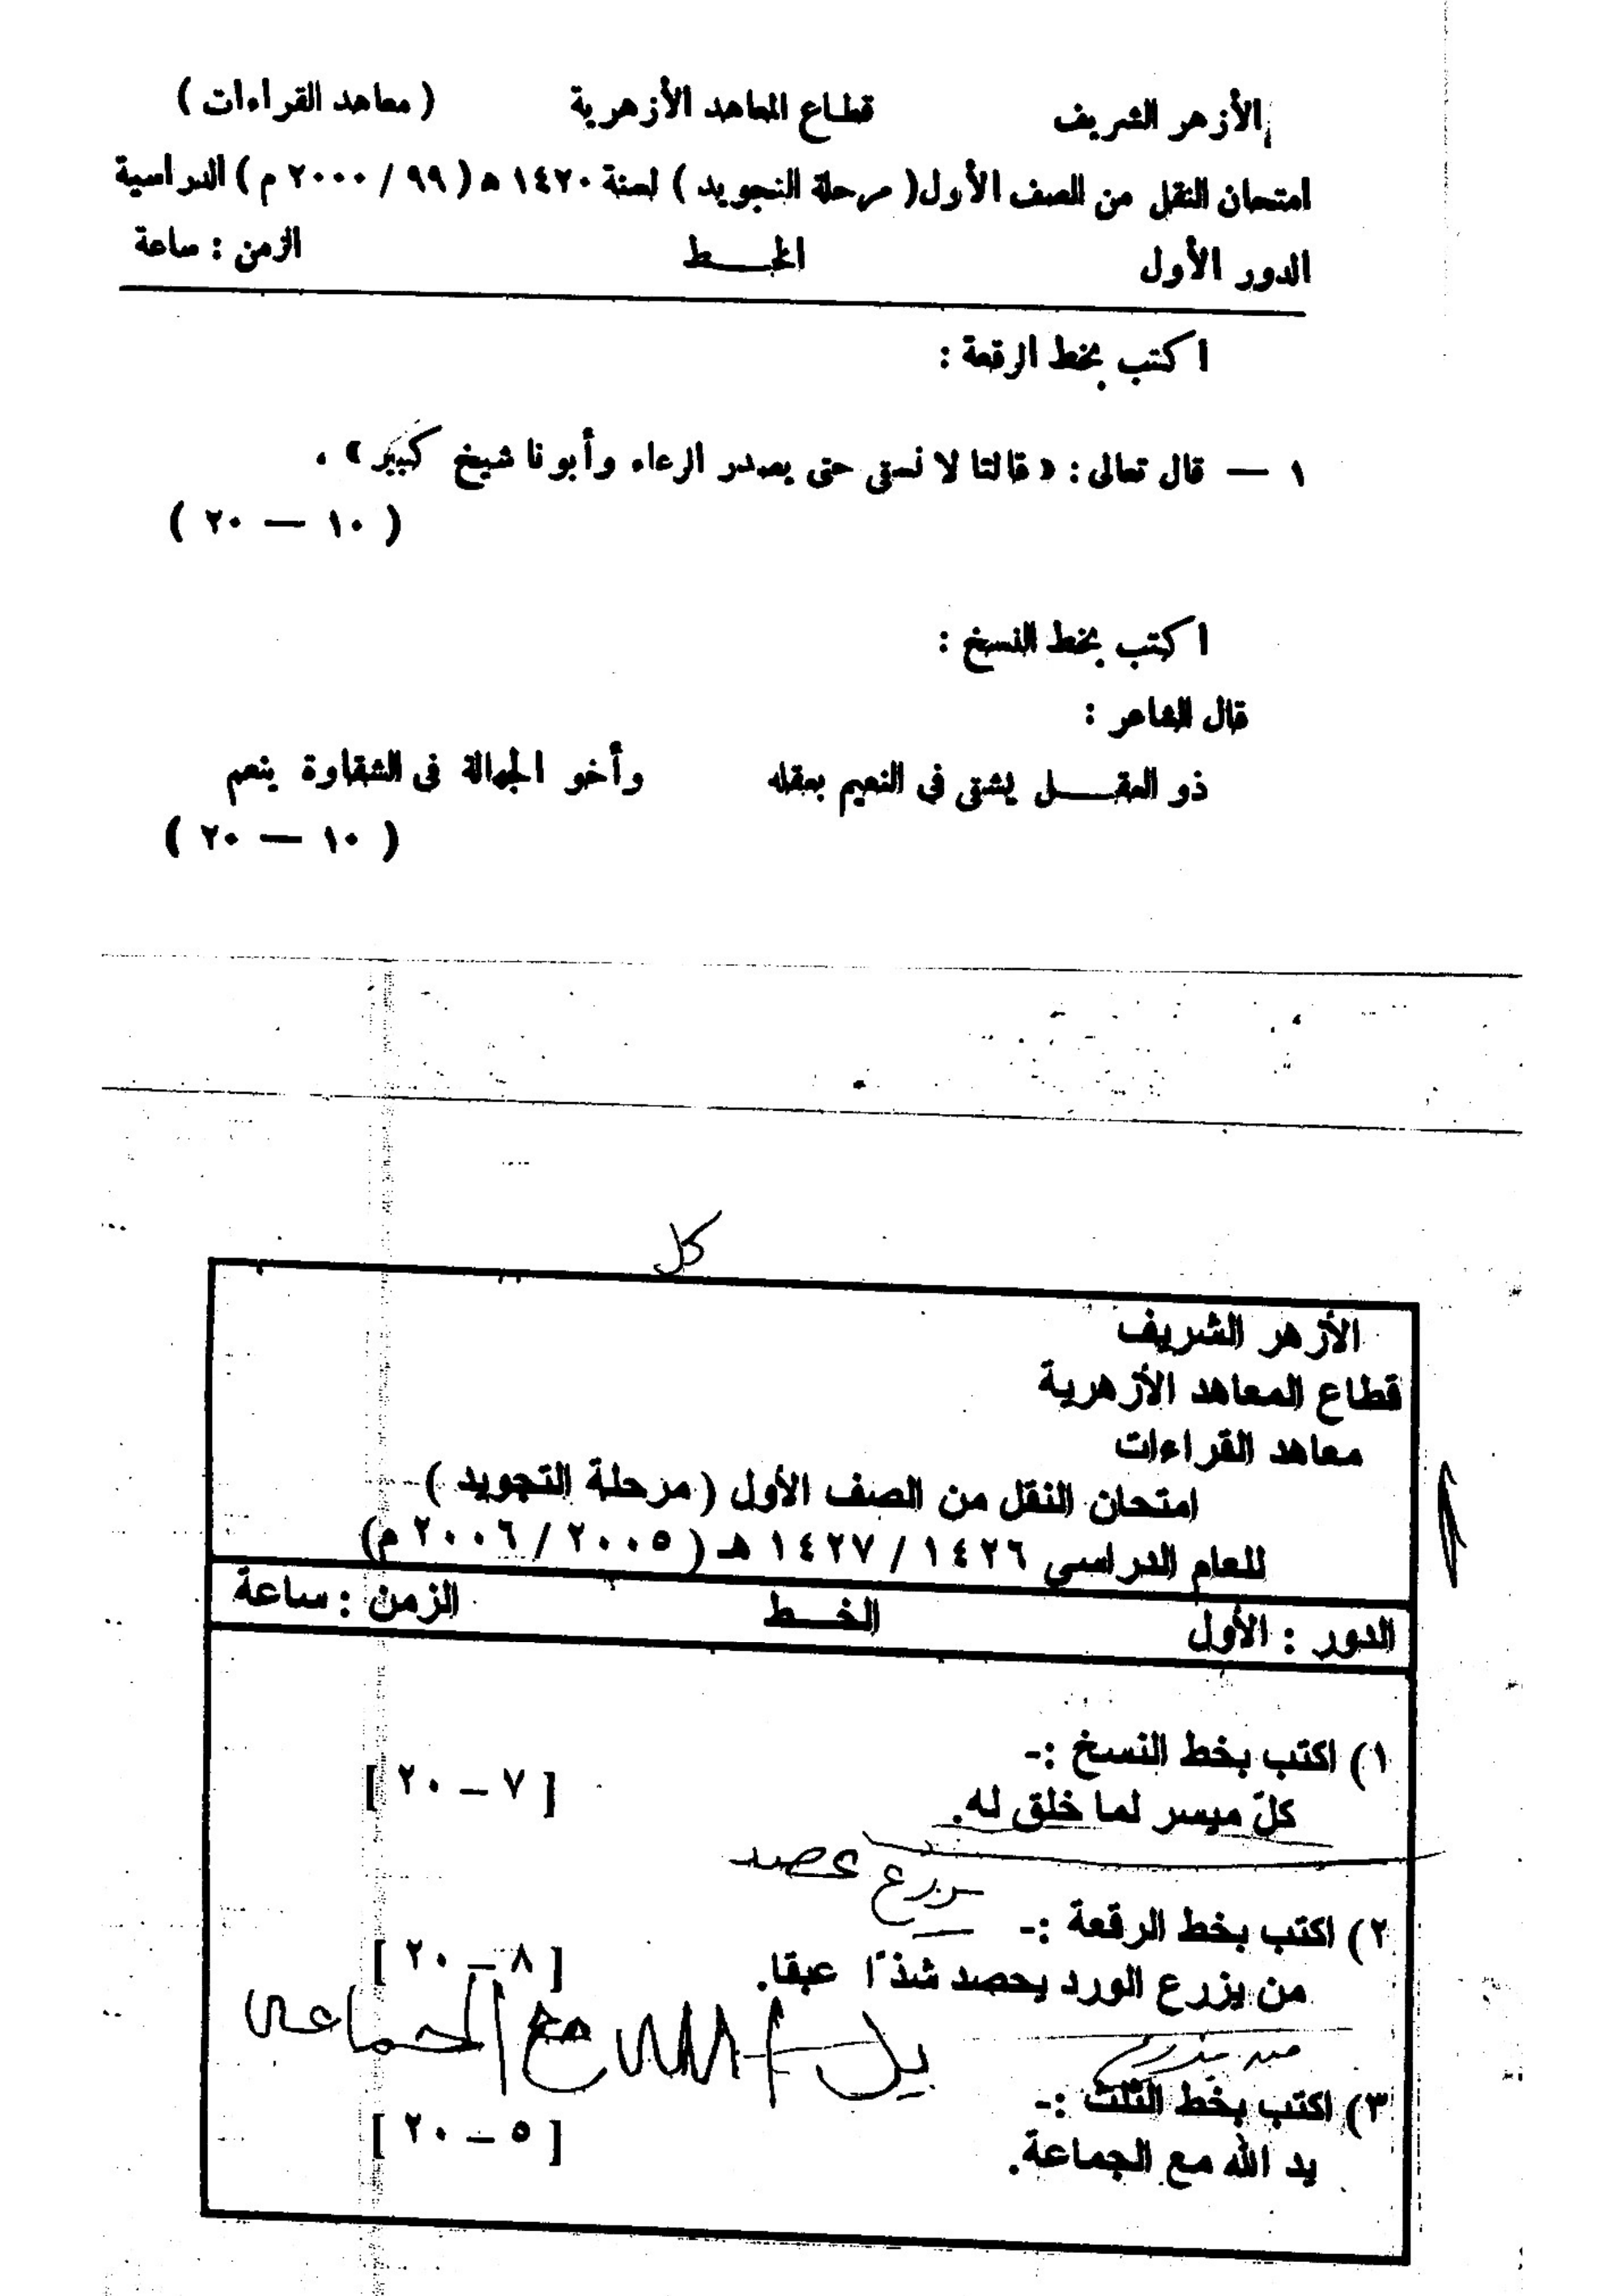 الأزهر الشريف قطاع المعاهد الأزهرية ( معاهد القراءات )
امتحان النقل من الصف الأول ( مرحلة التجويد ) لسنة ١٤٢٠ ه ( ٩٩ / ٢٠٠٠ م ) الدراسية
الدور الأول الخـــط الزمن : ساعة
اكتب بخط الرقعة :
١ — قال تعالى : « قالتا لا نسقى حتى يصدر الرعاء وأبونا شيخ كبير » .
( ١٠ — ٢٠ )
اكتب بخط النسخ :
قال الشاعر :
ذو العقـــل يشقى فى النعيم بعقله وأخو الجهالة فى الشقاوة ينعم
( ١٠ — ٢٠ )
كل
الأزهر الشريف
قطاع المعاهد الأزهرية
معاهد القراءات
امتحان النقل من الصف الأول ( مرحلة التجويد )
للعام الدراسي ١٤٢٦ / ١٤٢٧ هـ ( ٢٠٠٥ / ٢٠٠٦ م)
الدور : الأول الخـــط الزمن : ساعة
١) اكتب بخط النسخ :-
[ ٧ – ٢٠ ]
كلّ ميسر لما خلق له.
٢) اكتب بخط الرقعة :-
[ ٨ – ٢٠ ]
من يزرع الورد يحصد شذًا عبقا.
الله مع الجماعة
٣) اكتب بخط الثلث :-
[ ٥ – ٢٠ ]
يد الله مع الجماعة.